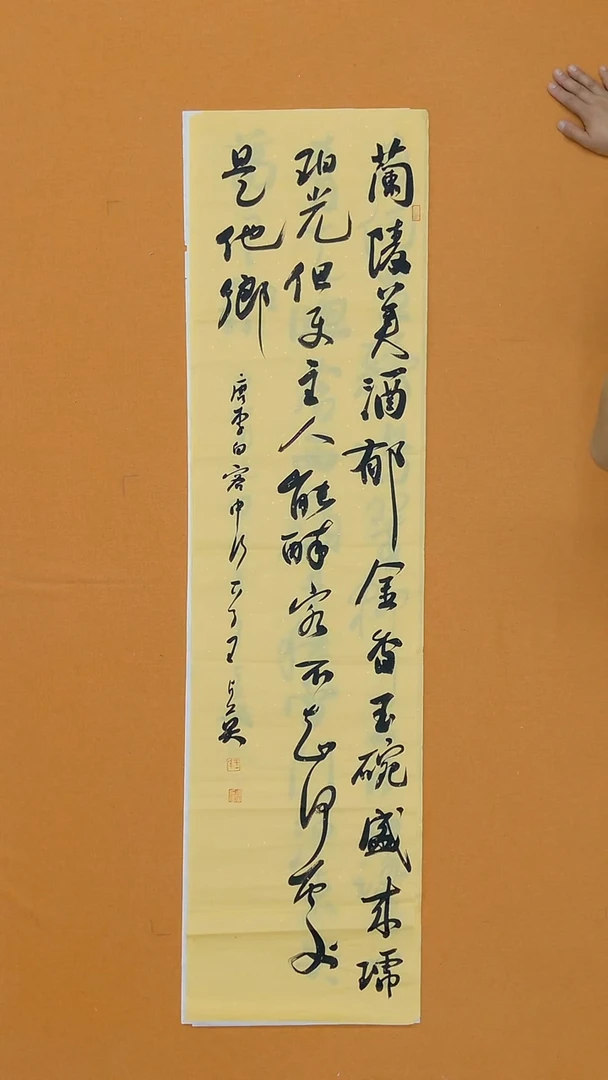 蘭陵美酒郁金香玉碗盛来琥
珀光但使主人能醉客不知何处
是他鄉
唐李白客中行 王 英